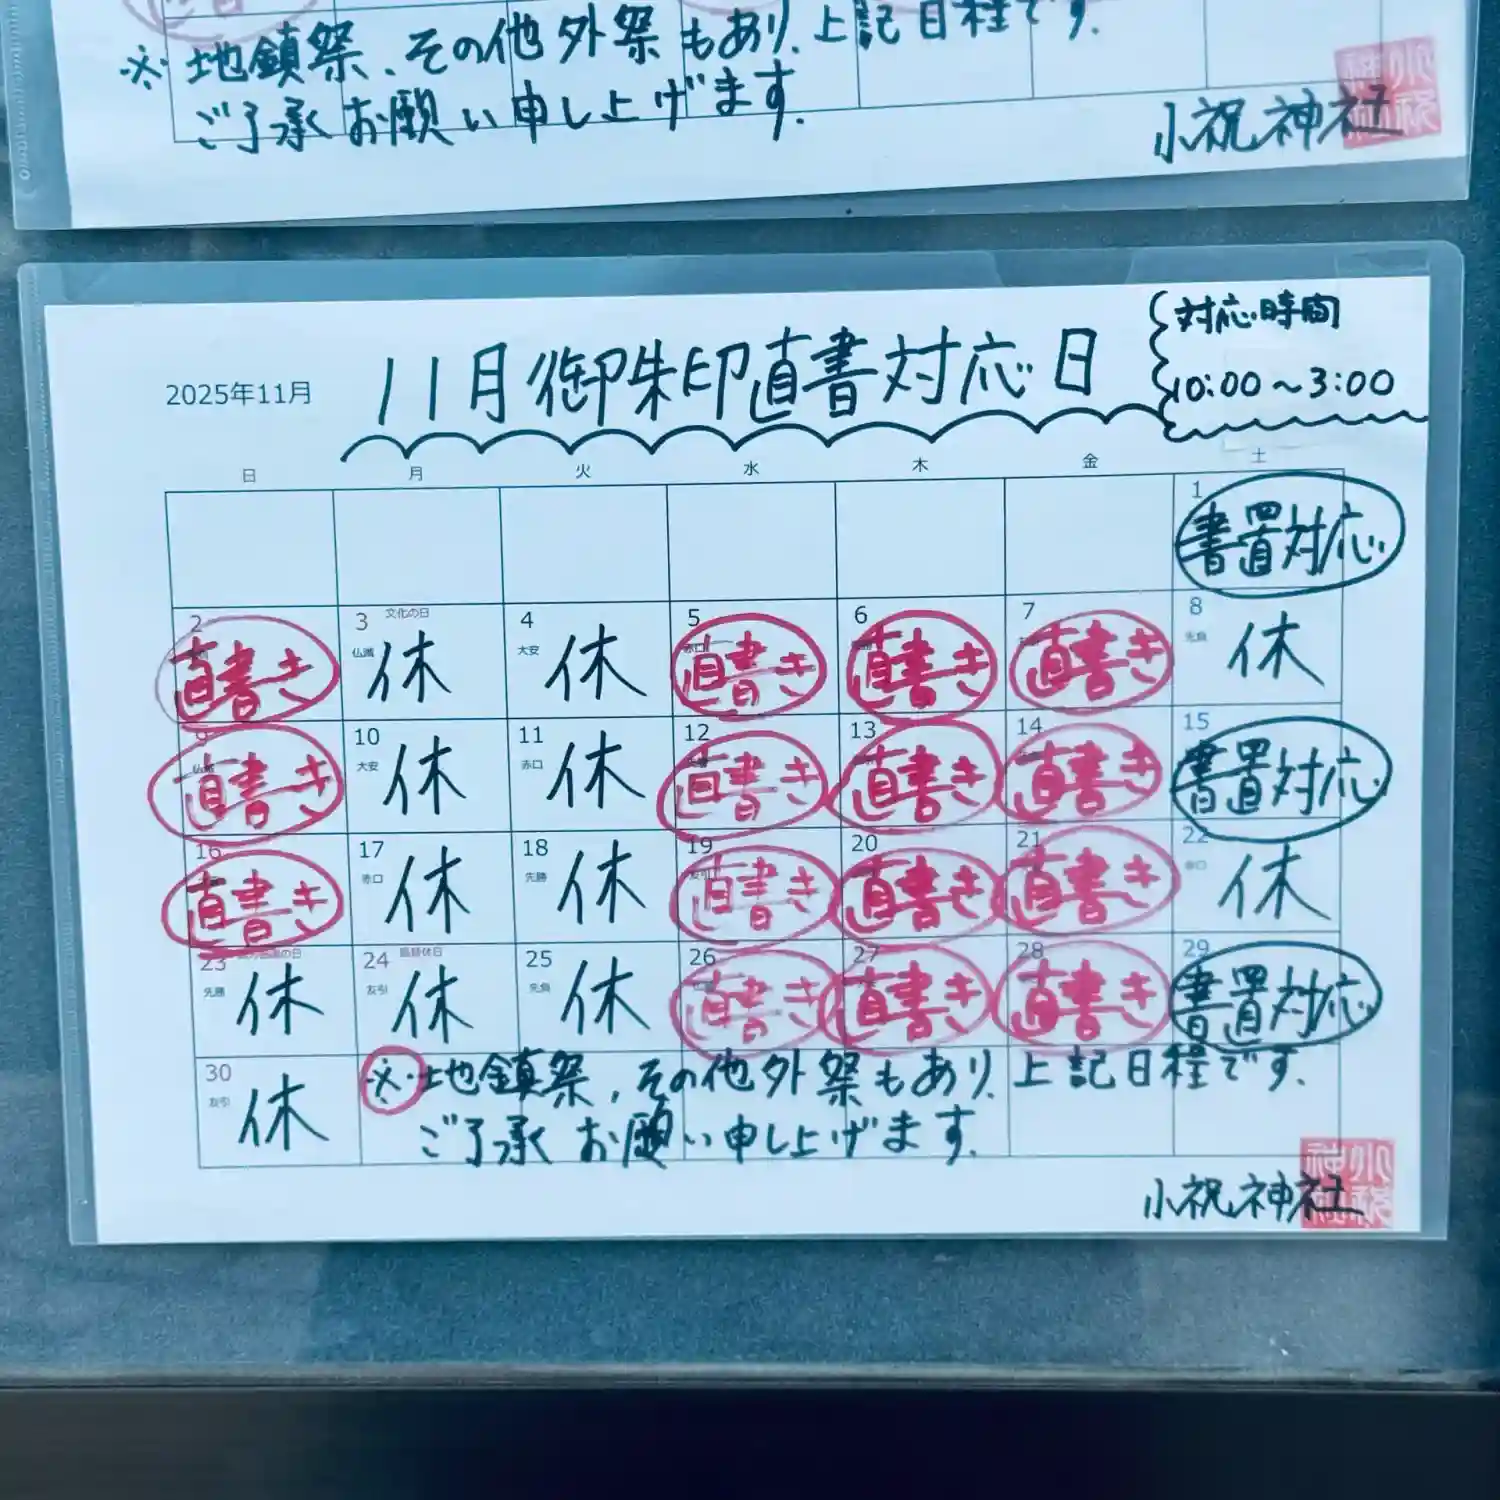 ※ 地鎮祭、その他外祭もあり、上記日程です。
ご了承お願い申し上げます。
小祝神社
2025年11月
11月御朱印直書対応日
対応時間
10:00～3:00
日 月 火 水 木 金 土
1
書置対応
2 3 文化の日 4 5 6 7 8
仏滅 大安 赤口 先負
直書き 休 休 直書き 直書き 直書き 休
9 10 11 12 13 14 15
仏滅 大安 赤口
直書き 休 休 直書き 直書き 直書き 書置対応
16 17 18 19 20 21 22
赤口 先勝 友引 赤口
直書き 休 休 直書き 直書き 直書き 休
23 24 振替休日 25 26 27 28 29
先勝 友引 先負
休 休 休 直書き 直書き 直書き 書置対応
30
友引
休
※地鎮祭、その他外祭もあり、上記日程です。
ご了承お願い申し上げます。
小祝神社